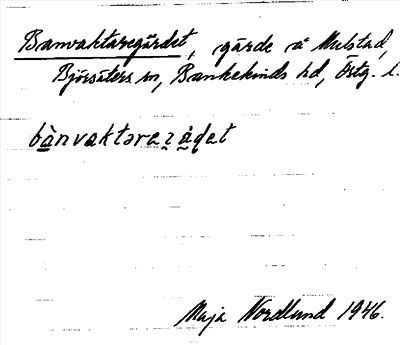 Banvaktaregärdet, gärde å Mulstad,
Björsäters sn, Bankekinds hd, Östg. l.
Maja Nordlund 1946.